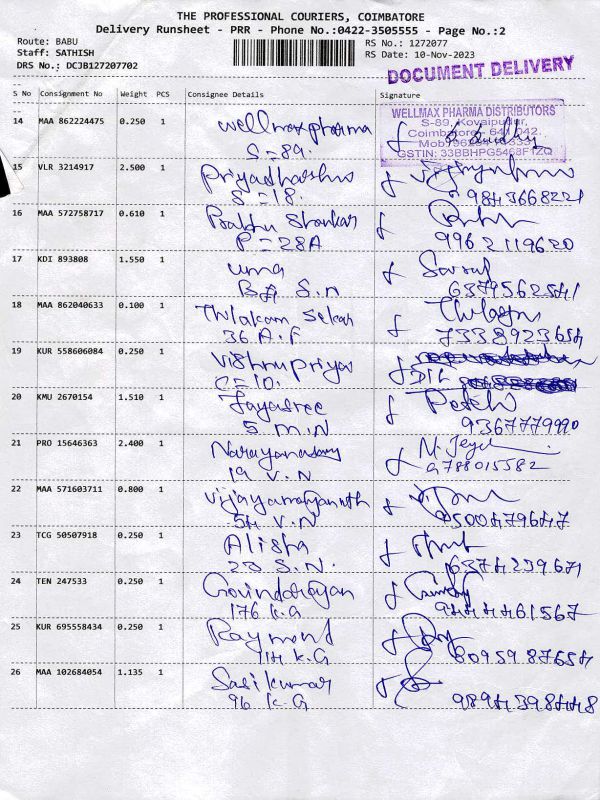 THE PROFESSIONAL COURIERS, COIMBATORE
Delivery Runsheet - PRR - Phone No.:0422-3505555 - Page No.:2
Route: BABU
RS No.: 1272077
Staff: SATHISH
RS Date: 10-Nov-2023
DRS No.: DCJB127207702
DOCUMENT DELIVERY
S No Consignment No Weight PCS Consignee Details Signature
14 MAA 862224475 0.250 1 Wellmaxpharma
S=89.
WELLMAX PHARMA DISTRIBUTORS
S-89, Kovaipudur,
Coimbatore - 641 042
GSTIN: 33BBHPG5468F1ZQ
15 VLR 3214917 2.500 1
S=18. 9843668221
16 MAA 572758717 0.610 1 Babhu Shankar
P=28A 9962119620
17 KDI 893808 1.550 1 uma
S.n 6379562541
18 MAA 862040633 0.100 1 Thilakam Sekar
36 A.F 7338923654
19 KUR 558606084 0.250 1 Vishnupriya
C=10.
20 KMU 2670154 1.510 1 Jayasree
5 M.N 9367779990
21 PRO 15646363 2.400 1 Narayanasamy
19 V.N 9788015582
22 MAA 571603711 0.800 1
54 V.N
23 TCG 50507918 0.250 1 Alisha
23 S.N. 6374239671
24 TEN 247533 0.250 1 Govindarajan
176 K.G 9444461567
25 KUR 695558434 0.250 1 Raymond
114 K.G 8095987654
26 MAA 102684054 1.135 1 Sasikumar
96 K.G 9894398448